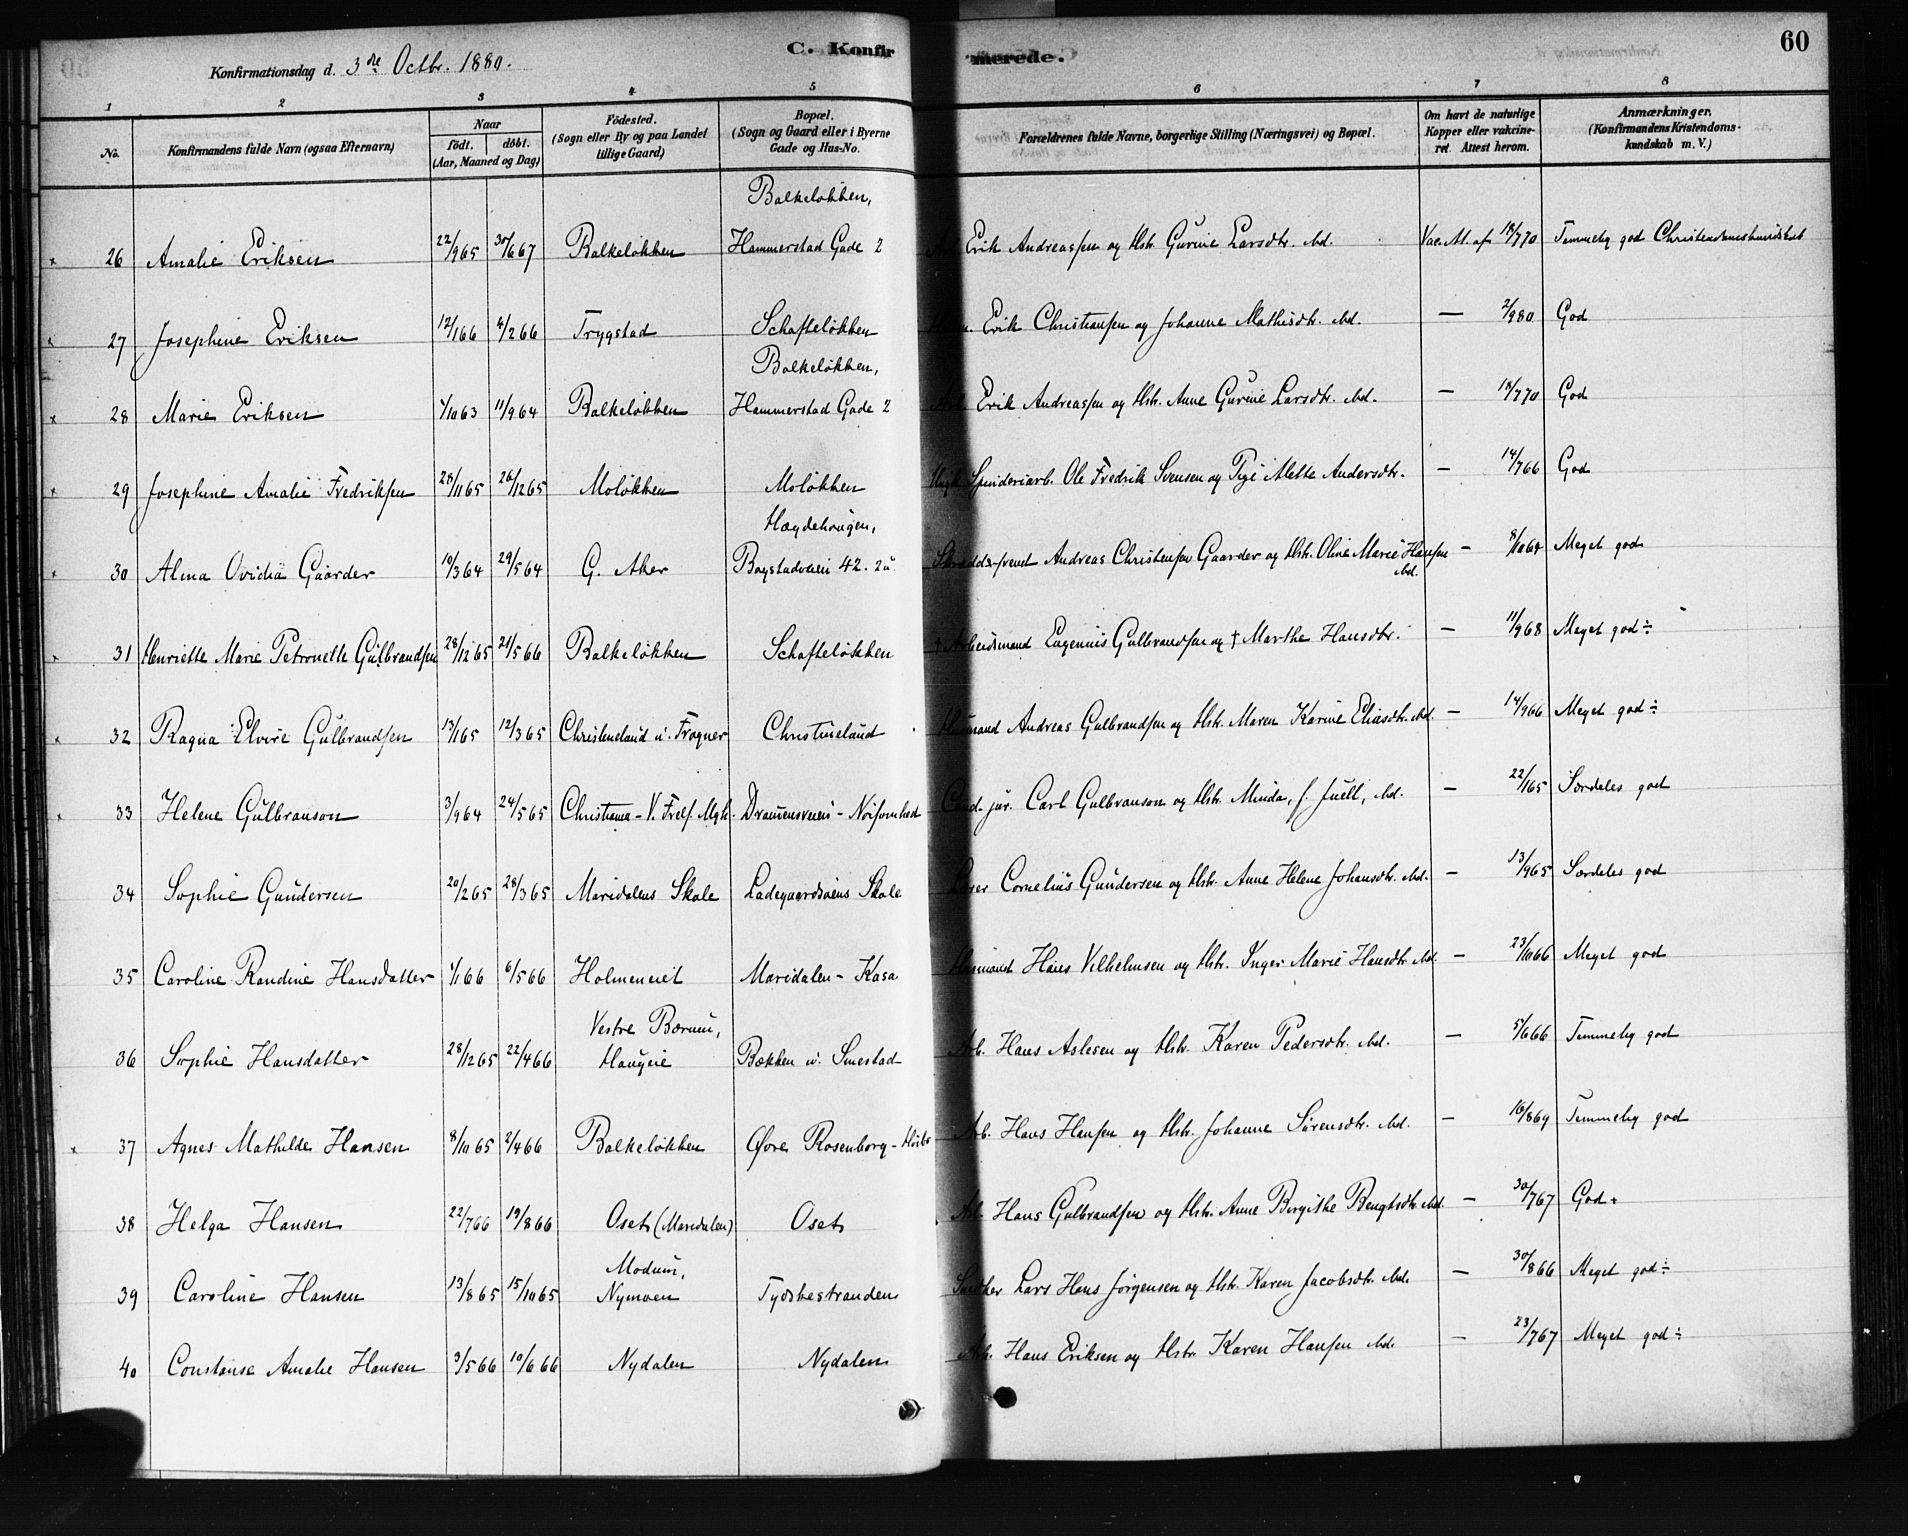 C. Konfir
merede.
60
Konfirmationsdag d. 3die Octbr. 1880.
1 2 3 4 5 6 7 8
No.
Konfirmandens fulde Navn (ogsaa Efternavn)
Naar
födt. döbt.
(Aar, Maaned og Dag)
Födested.
(Sogn eller By og paa Landet
tillige Gaard)
Bopæl.
(Sogn og Gaard eller i Byerne
Gade og Hus-No.
Forældrenes fulde Navne, borgerlige Stilling (Næringsvei) og Bopæl.
Om havt de naturlige
Kopper eller vakcine-
ret. Attest herom.
Anmærkninger.
(Konfirmandens Kristendoms-
kundskab m. V.)
Balkeløkken,
26 Amalie Eriksen 22/9 65 30/6 67 Balkeløkken Hammerstad Gade 2 Arb. Erik Andreassen og Hstr. Gurine Larsdtr. ibd. Vac. At. af 18/7 70 Temmelig god Christendomskundskab
27 Josephine Eriksen 12/1 66 4/2 66 Trygstad Schafteløkken Erik Christiansen og Johanne Mathisdtr. ibd. — 2/9 80 God
Balkeløkken,
28 Marie Eriksen 1/10 63 11/9 64 Balkeløkken Hammerstad Gade 2 Arb. Erik Andreassen og Hstr. Anne Gurine Larsdtr. ibd. — 18/7 70 God
29 Josephine Amalie Fredriksen 28/11 65 26/12 65 Moløkken Moløkken Ungk. Spinderiarb. Ole Fredrik Svensen og Pige Mette Andersdtr. — 14/7 66 God
Hægdehougen,
30 Alma Ovidia Gaarder 10/3 64 29/5 64 G. Aker Bogstadveien 42. Skræddersvend Andreas Christensen Gaarder og Hstr. Oline Marie Hansen — 8/10 64 Meget god
ibd.
31 Henriette Marie Petronelle Gulbrandsen 28/12 65 21/5 66 Balkeløkken Schafteløkken † Arbeidsmand Eugenius Gulbrandsen og † Marthe Hansdtr. — 11/9 68 Meget god ÷
32 Ragna Elvire Gulbrandsen 13/1 65 12/3 65 Christineland u. Frogner Christineland Husmand Andreas Gulbrandsen og Hstr. Maren Karine Eliasdtr. ibd. — 14/9 66 Meget god ÷
33 Helene Gulbranson 3/9 64 24/5 65 Christiania - V. Frels. Mgh. Drammensveien - Cand. jur. Carl Gulbranson og Hstr. Minda, f. Juell, ibd. — 22/1 65 Særdeles god
34 Sophie Gundersen 20/2 65 28/3 65 Maridalens Skole Ladegaardsøens Skole Lærer Cornelius Gundersen og Hstr. Anne Helene Johansdtr. ibd. — 13/9 65 Særdeles god
35 Caroline Randine Hansdatter 1/1 66 6/5 66 Holmeneiet Maridalen - Kasa Husmand Hans Vilhelmsen og Hstr. Inger Marie Hansdtr. ibd. — 23/10 66 Meget god
Vestre Bærum,
36 Sophie Hansdatter 28/12 65 22/4 66 Haugeie Bækken u. Smestad Arb. Hans Aslesen og Hstr. Karen Pedersdtr. ibd. — 5/6 66 Temmelig god
37 Agnes Mathilde Hansen 8/10 65 2/4 66 Balkeløkken Øvre Rosenborg - Arb. Hans Hansen og Hstr. Johanne Sørensdtr. ibd. — 16/8 69 Temmelig god
38 Helga Hansen 22/7 66 19/8 66 Oset (Maridalen) Oset Arb. Hans Gulbrandsen og Hstr. Anne Birgithe Bengtsdtr. ibd. — 30/7 67 God ÷
Modum,
39 Caroline Hansen 13/8 65 15/10 65 Nymoen Tydskestranden Snedker Lars Hans Jørgensen og Hstr. Karen Jacobsdtr. ibd. — 30/8 66 Meget god ÷
40 Constanse Amalie Hansen 3/5 66 10/6 66 Nydalen Nydalen Arb. Hans Eriksen og Hstr. Karen Hansen ibd. — 23/7 67 Meget god ÷